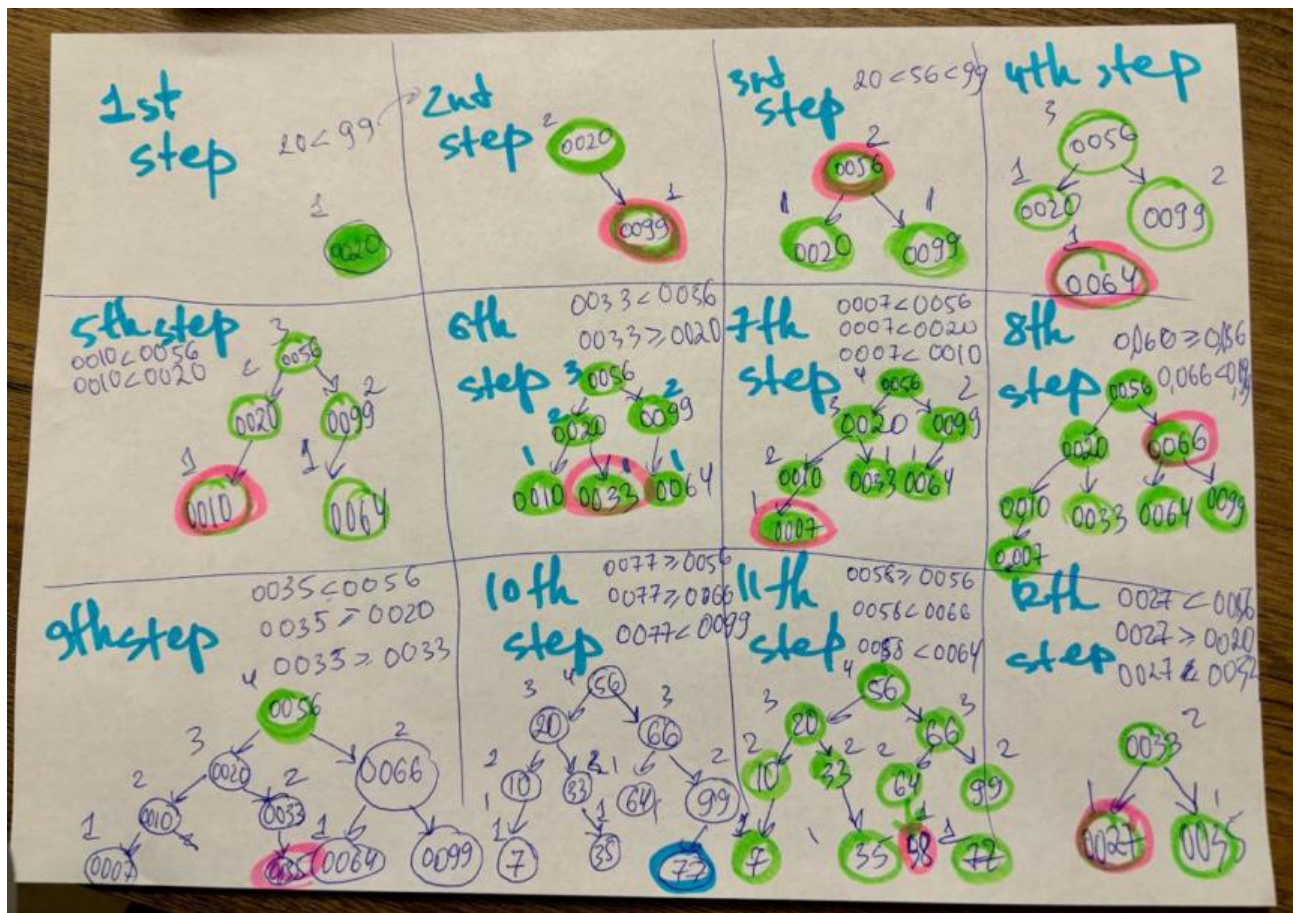 1st
step
20 < 99
1
0020
2nd
step
2
0020
1
0099
3rd
step
20 < 56 < 99
2
0056
1 1
0020 0099
4th step
3
0056
1 2
0020 0099
1
0064
5th step
0010 < 0056
0010 < 0020
3
0056
2 2
0020 0099
1 1
0010 0064
6th
step
0033 < 0036
0033 ≥ 0020
3 0056
2 2
0020 0099
1 1 1
0010 0033 0064
7th
step
0007 < 0056
0007 < 0020
0007 < 0010
4 0056
3 2
0020 0099
2 1 1
0010 0033 0064
1
0007
8th
step
0056
0020 0066
0010 0033 0064 0099
0,007
9th step
0035 < 0056
0035 ≥ 0020
0035 ≥ 0033
4
0056
3 2
0020 0066
2 2
0010 0033
1 1
0007 0064 0099
10th
step
0077 ≥ 0056
0077 ≥ 0066
0077 < 0099
4
56
3 3
20 66
2 2
10 33 64 99
1 1
7 35 77
11th
step
0058 ≥ 0056
0058 < 0066
0058 < 0064
4
56
3 3
20 66
2 2 2 2
10 33 64 99
1 1 1
7 35 58 77
12th
step
0027 ≥ 0020
2
0033
1 1
0027 0035